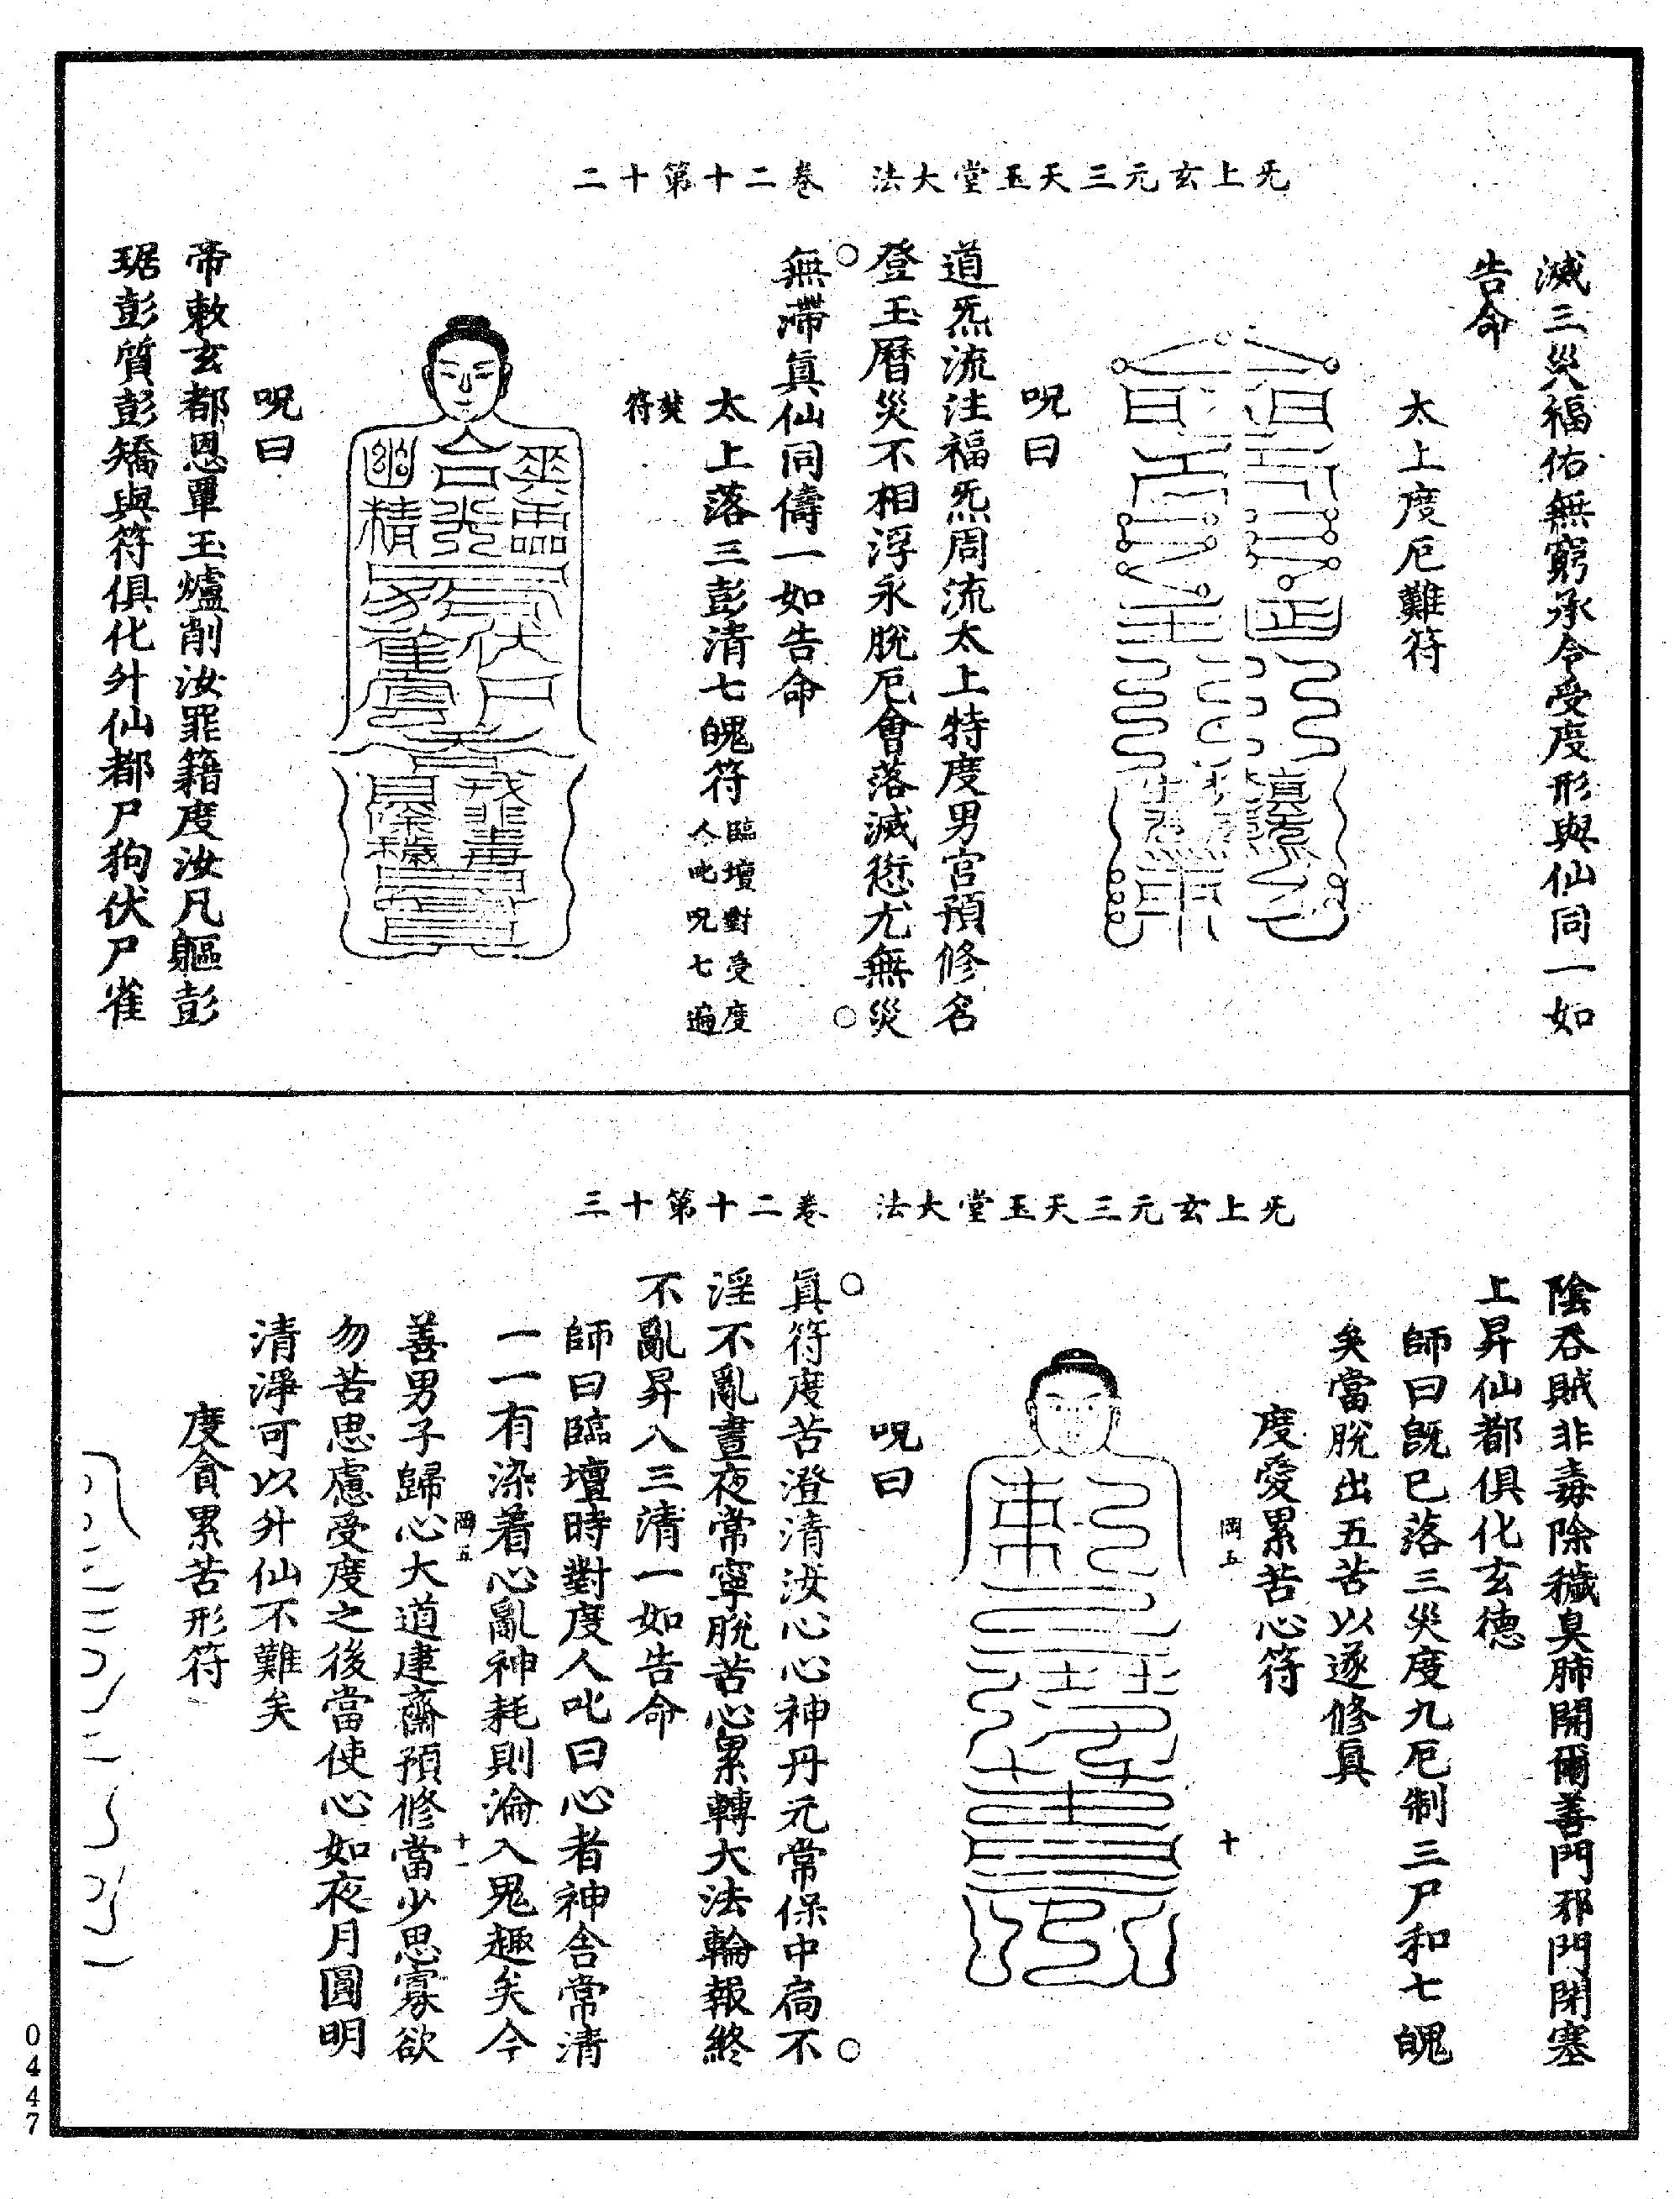 旡上玄元三天玉堂大法 卷二十第十二
滅三災福佑無窮承令受度形與仙同一如
告命
太上度厄難符
呪曰
道炁流注福炁周流太上特度男官預修名
登玉曆災不相浮永脫厄會落滅愆尤無災
無滯真仙同儔一如告命
太上落三彭清七魄符臨壇對受度
人叱呪七遍
焚
符
呪曰
帝敕玄都恩覃玉爐削汝罪籍度汝凡軀彭
琚彭質彭矯與符俱化升仙都尸狗伏尸雀
旡上玄元三天玉堂大法 卷二十第十三
陰吞賊非毒除穢臭肺開爾善門邪門閉塞
上昇仙都俱化玄德
師曰旣已落三災度九厄制三尸和七魄
矣當脫出五苦以遂修真
度愛累苦心符
岡五
十
呪曰
真符度苦澄清汝心心神丹元常保中扃不
淫不亂晝夜常寧脫苦心累轉大法輪報終
不亂昇入三清一如告命
師曰臨壇時對度人叱曰心者神舍常清
一一有染着心亂神耗則淪入鬼趣矣今
岡五
十一
善男子歸心大道建齋預修當少思寡欲
勿苦思慮受度之後當使心如夜月圓明
清淨可以升仙不難矣
度貪累苦形符
0447